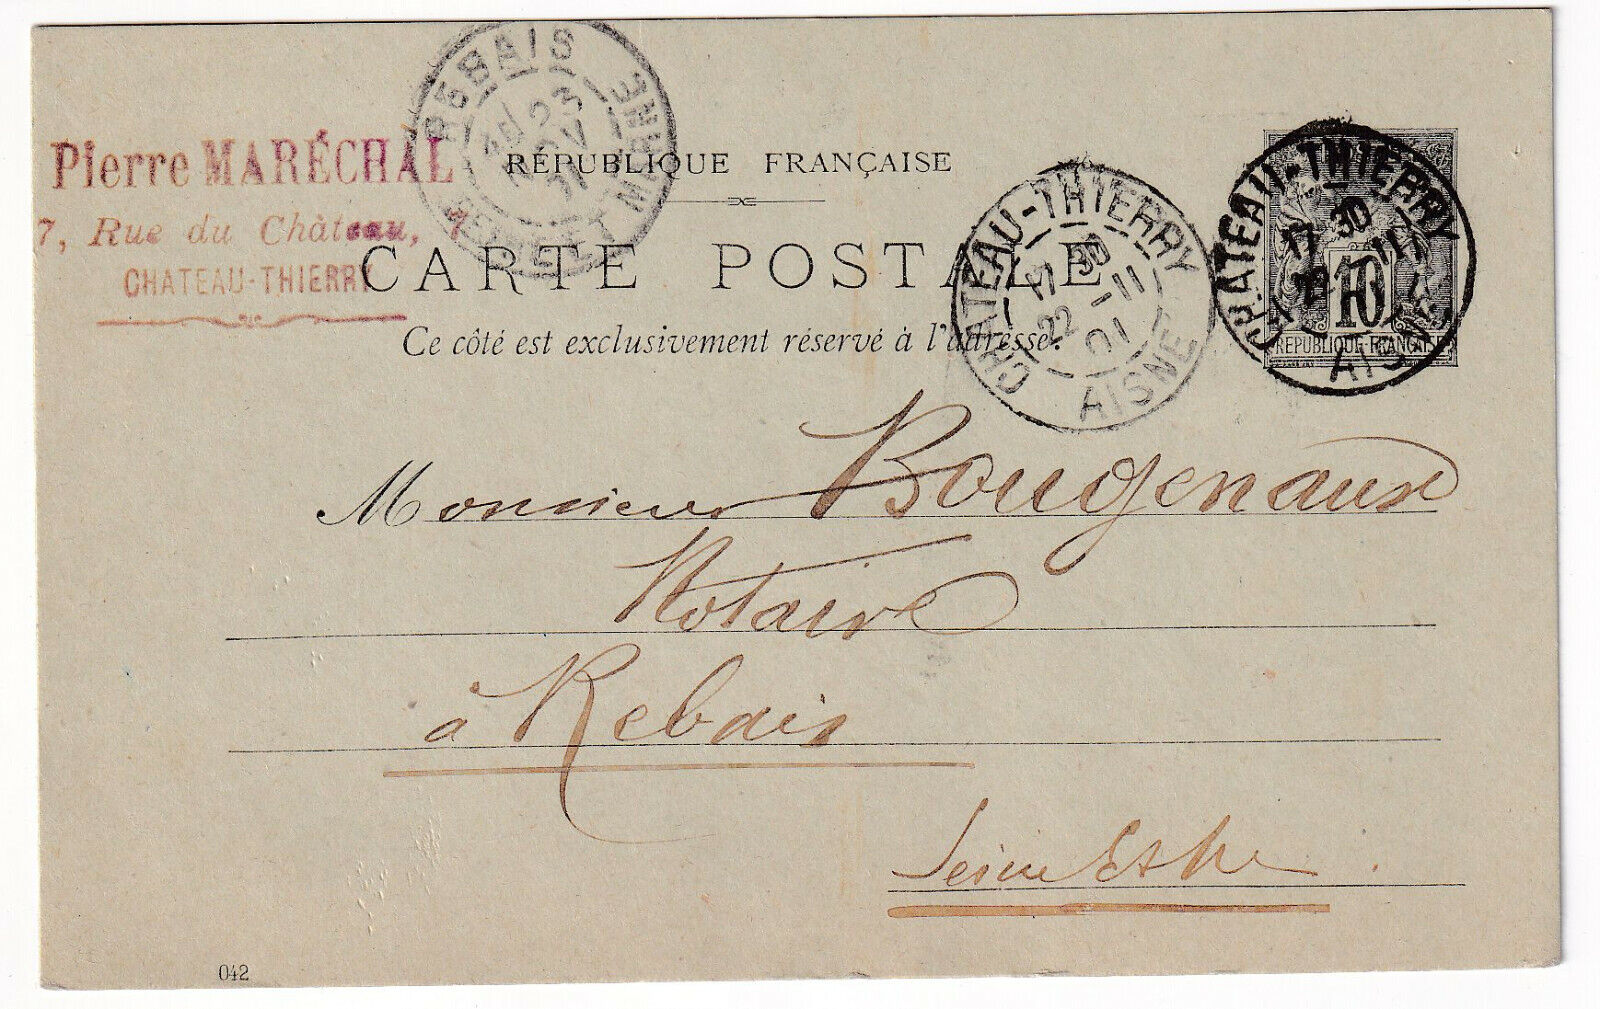 REBAIS
23
01
SEINE ET MARNE
Pierre MARÉCHAL
7, Rue du Château, 7
CHATEAU-THIERRY
RÉPUBLIQUE FRANÇAISE
CARTE POSTALE
Ce côté est exclusivement réservé à l'adresse.
CHATEAU-THIERRY
17 30
22 -11
01
AISNE
CHATEAU-THIERRY
17 30
-11
AISNE
10
REPUBLIQUE FRANÇAISE
Monsieur Bougenaux
Notaire
à Rebais
Seine & Me
042